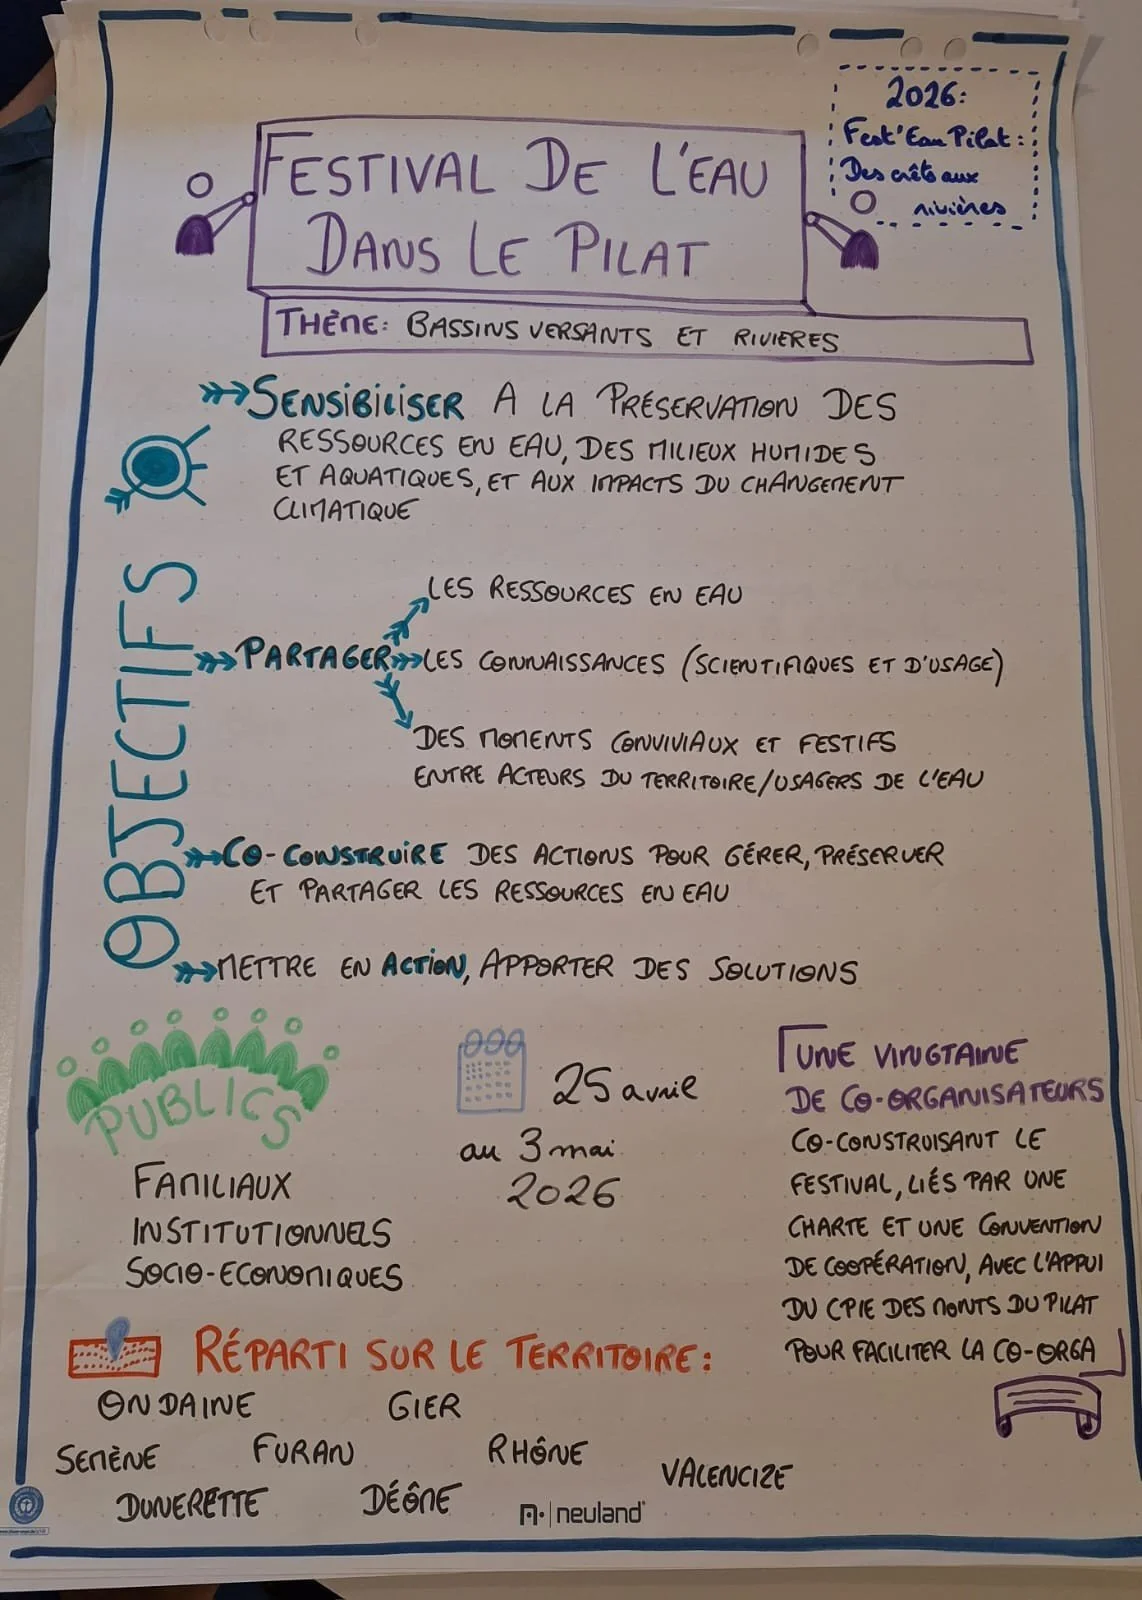 2026:
Fest'Eau Pilat:
Des crêts aux
rivières
FESTIVAL DE L'EAU
DANS LE PILAT
THÈME: BASSINS VERSANTS ET RIVIERES
OBJECTIFS
SENSIBILISER A LA PRÉSERVATION DES
RESSOURCES EN EAU, DES MILIEUX HUMIDES
ET AQUATIQUES, ET AUX IMPACTS DU CHANGEMENT
CLIMATIQUE
PARTAGER
LES RESSOURCES EN EAU
LES CONNAISSANCES (SCIENTIFIQUES ET D'USAGE)
DES MOMENTS CONVIVIAUX ET FESTIFS
ENTRE ACTEURS DU TERRITOIRE/USAGERS DE L'EAU
CO-CONSTRUIRE DES ACTIONS POUR GÉRER, PRÉSERVER
ET PARTAGER LES RESSOURCES EN EAU
METTRE EN ACTION, APPORTER DES SOLUTIONS
PUBLICS
FAMILIAUX
INSTITUTIONNELS
SOCIO-ECONOMIQUES
25 avril
au 3 mai
2026
UNE VINGTAINE
DE CO-ORGANISATEURS
CO-CONSTRUISANT LE
FESTIVAL, LIÉS PAR UNE
CHARTE ET UNE CONVENTION
DE COOPÉRATION, AVEC L'APPUI
DU CPIE DES MONTS DU PILAT
POUR FACILITER LA CO-ORGA
RÉPARTI SUR LE TERRITOIRE:
ONDAINE GIER
SEMÈNE FURAN RHÔNE VALENCIZE
DUNERETTE DÉÔME
neuland